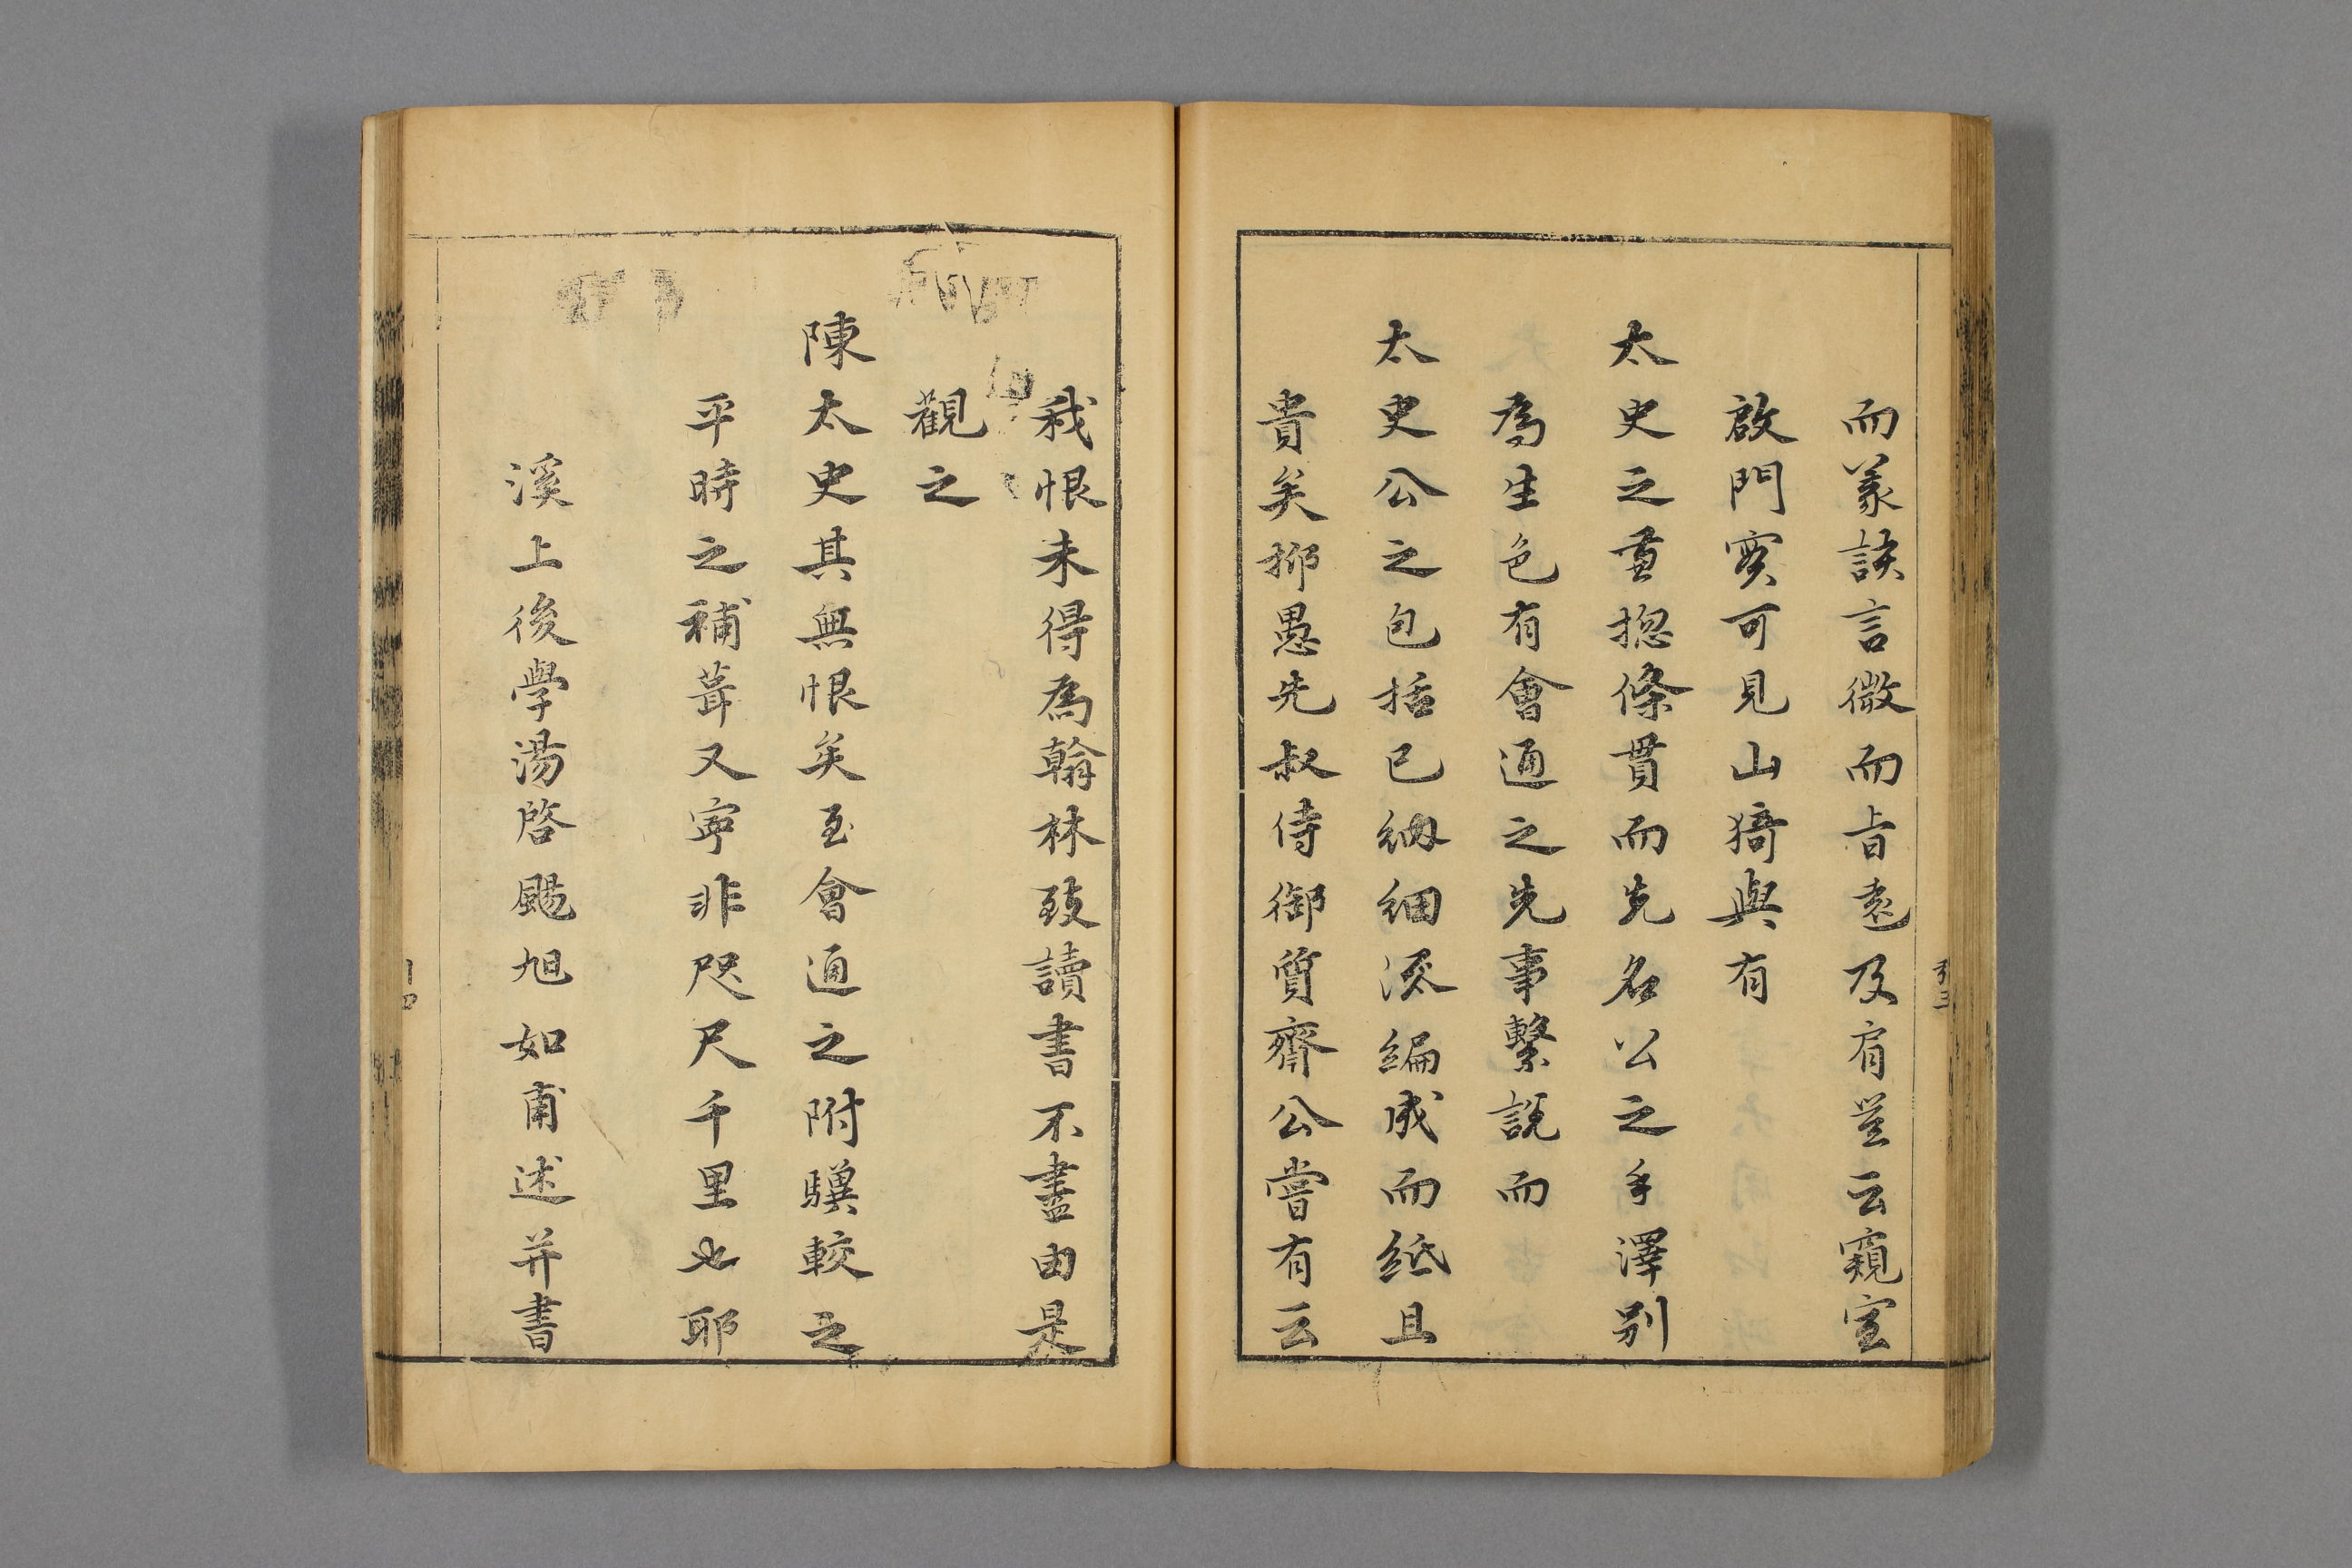 而篆訣言微而旨遠及肩豈云窺室
啟門實可見山猗與有
太史之重揔條貫而先名公之手澤別
為生色有會通之先事繫說而
太史公之包括已納細流編成而紙且
貴矣抑愚先叔侍御質齊公嘗有云
我恨未得為翰林致讀書不盡由是
觀之
陳太史其無恨矣至會通之附驥較之
平時之補葺又寧非咫尺千里也耶
溪上後學湯啓颺旭如甫述并書